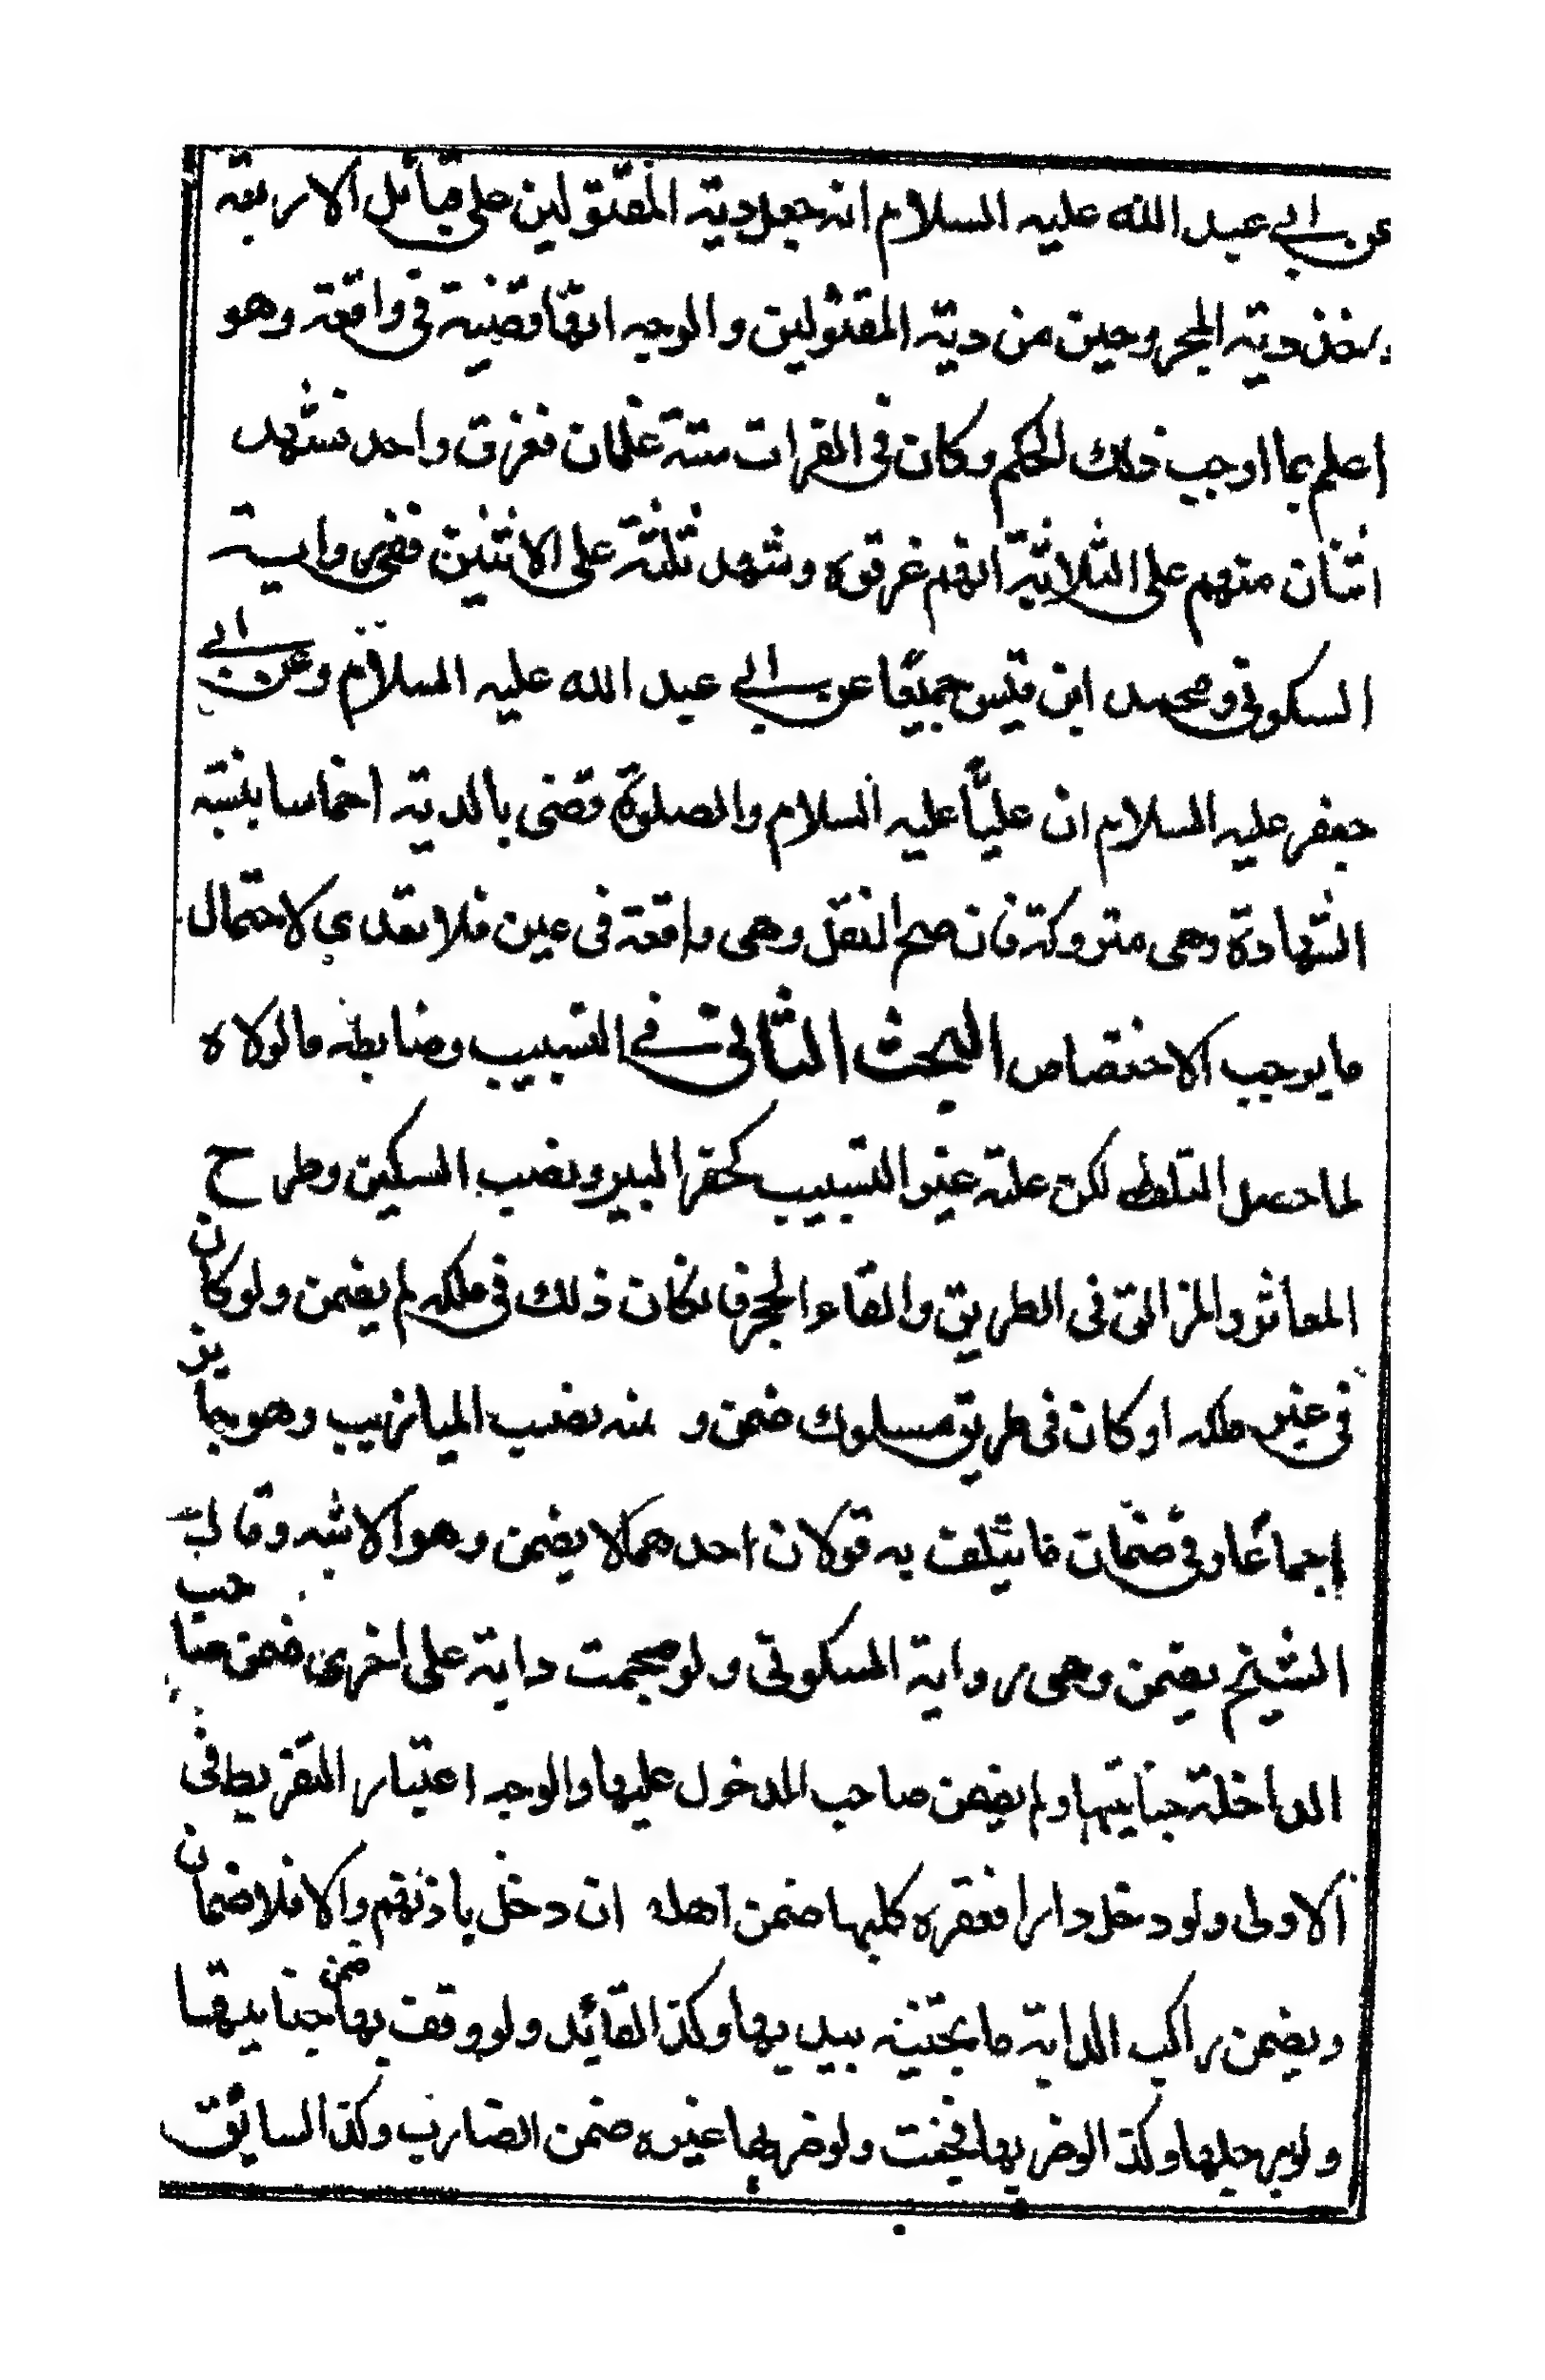 عن ابي عبد الله عليه السلام انه جعل دية المقتولين على قبائل الاربعة
وأخذ دية المجروحين من دية المقتولين والوجه انها قضية في واقعة وهو
اعلم بما اوجب ذلك الحكم وكان في الفرات ستة غلمان فغرق واحد فشهد
اثنان منهم على الثلاثة انهم غرقوه وشهد ثلثة على الاثنين ففي رواية
السكوني ومحمد ابن قيس جميعا عن ابي عبد الله عليه السلام وعن ابي
جعفر عليه السلام ان عليا عليه السلام والصلوة قضى بالدية اخماسا بنسبة
الشهادة وهي متروكة فان صح النقل وهي واقعة في عين فلا تعدي لاحتمال
ما يوجب الاختصاص البحث الثاني في التسبيب وضابطه ما لولاه
لما حصل التلف لكن علة غير التسبيب كحفر البير ونصب السكين وطرح
المعاثر والمزالق في الطريق والقاء الحجر فان كان ذلك في ملكه لم يضمن ولو كان
في غير ملكه او كان في طريق مسلوك ضمن و منه نصب الميازيب وهو جايز
اجماعا وفي ضمان ما يتلف به قولان احدهما لا يضمن وهو الاشبه وقال
الشيخ يضمن وهي رواية السكوني ولو هجمت دابة على اخرى ضمن صاحب
الداخلة جنايتها ولم يضمن صاحب المدخول عليها والوجه اعتبار التفريط في
الاولى ولو دخل دارا فعقره كلبها ضمن اهله ان دخل باذنهم والا فلا ضمان
ويضمن راكب الدابة ما تجنيه بيديها وكذا القائد ولو وقف بها ضمن جنايتها
ولو برجلها وكذا لو ضربها فجنت ولو ضربها غيره ضمن الضارب وكذا السائق